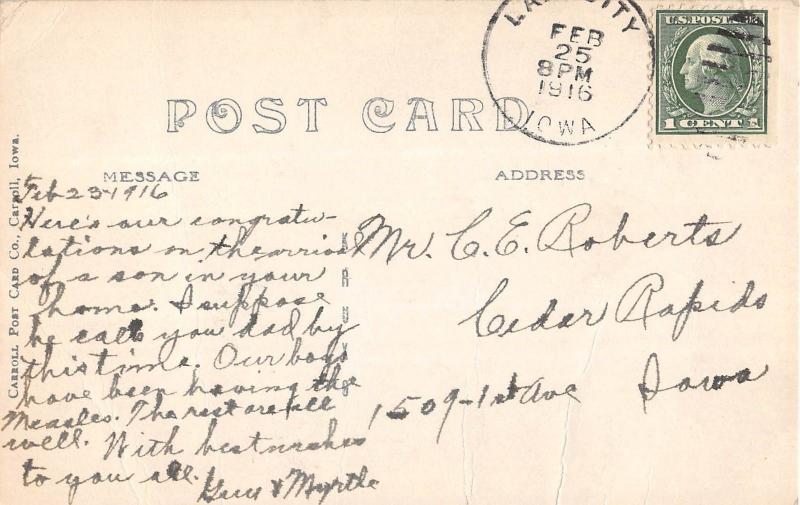 LAKE CITY
FEB
25
8PM
1916
IOWA
U.S. POSTAGE
1 CENT 1
POST CARD
MESSAGE
ADDRESS
CARROLL POST CARD CO., Carroll, Iowa.
KRUXO
Feb 23-1916
Here's our congratu-
lations on the arrival
of a son in your
home. I suppose
he calls you dad by
this time. Our boys
have been having the
Measles. The rest are all
well. With best wishes
to you all.
& Myrtle
Mr. C. E. Roberts
Cedar Rapids
1509-1st Ave Iowa